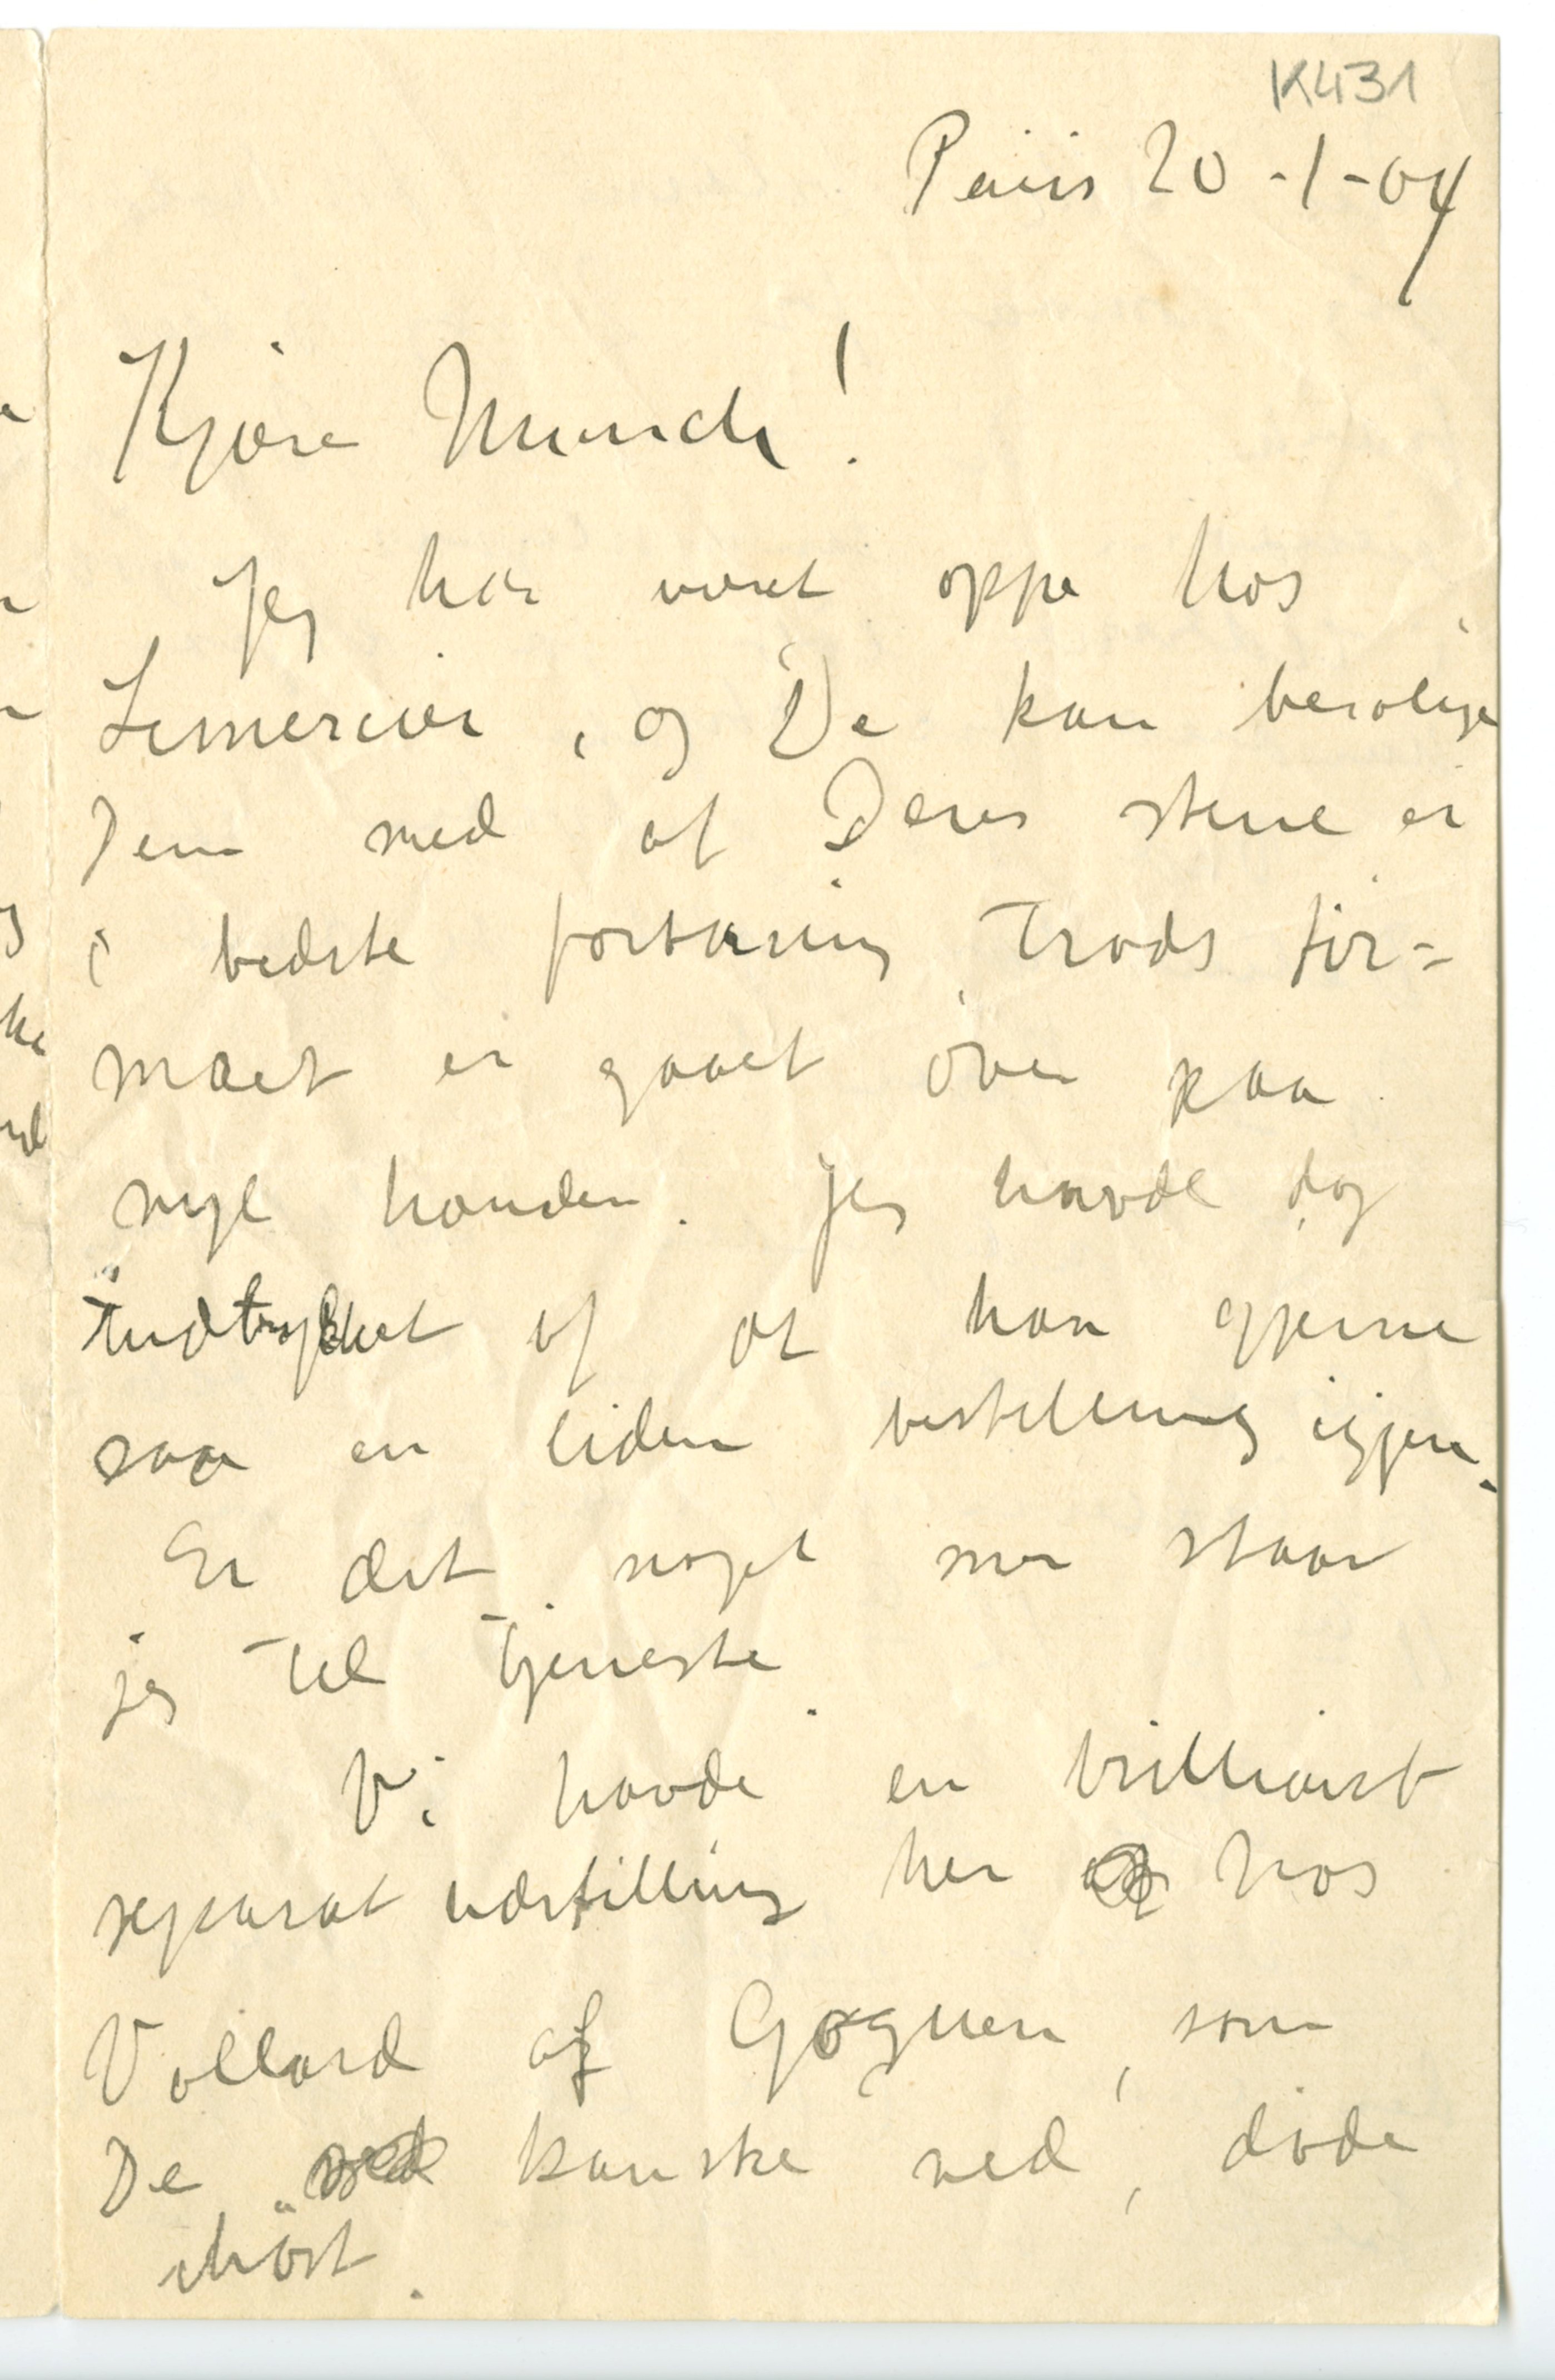 K431
Paris 20-1-04
Kjære Munch!
Jeg har været oppe hos
Lemercier, og De kan berolige
Dem med at Deres stene er
i bedste forvaring, trods fir=
maet er gaaet over paa
nye hænder. Jeg havde dog
indtrykket af at han gjerne
saa en liden bestilling igjen.
Er det noget mer staar
jeg til tjeneste.
Vi havde en brilliant
separat udstilling her hos
Vollard af Goguen, som
De kanske ved, døde
ihøst.